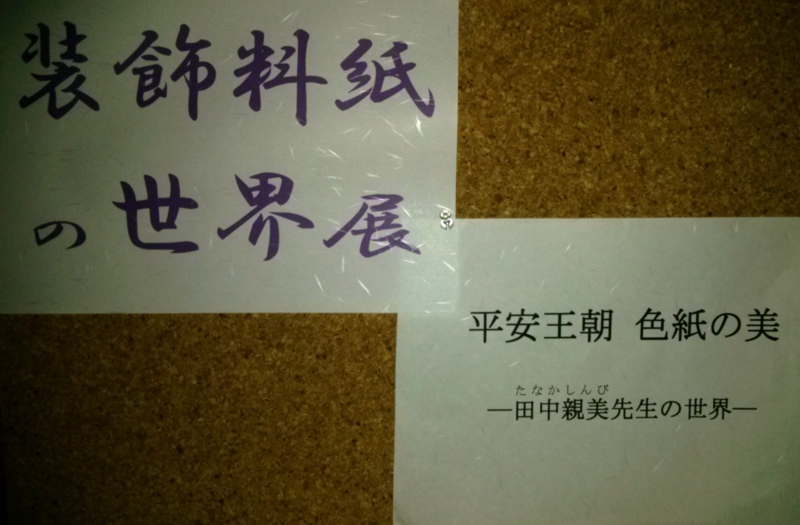 装飾料紙
の世界展
平安王朝 色紙の美
たなかしんび
―田中親美先生の世界―